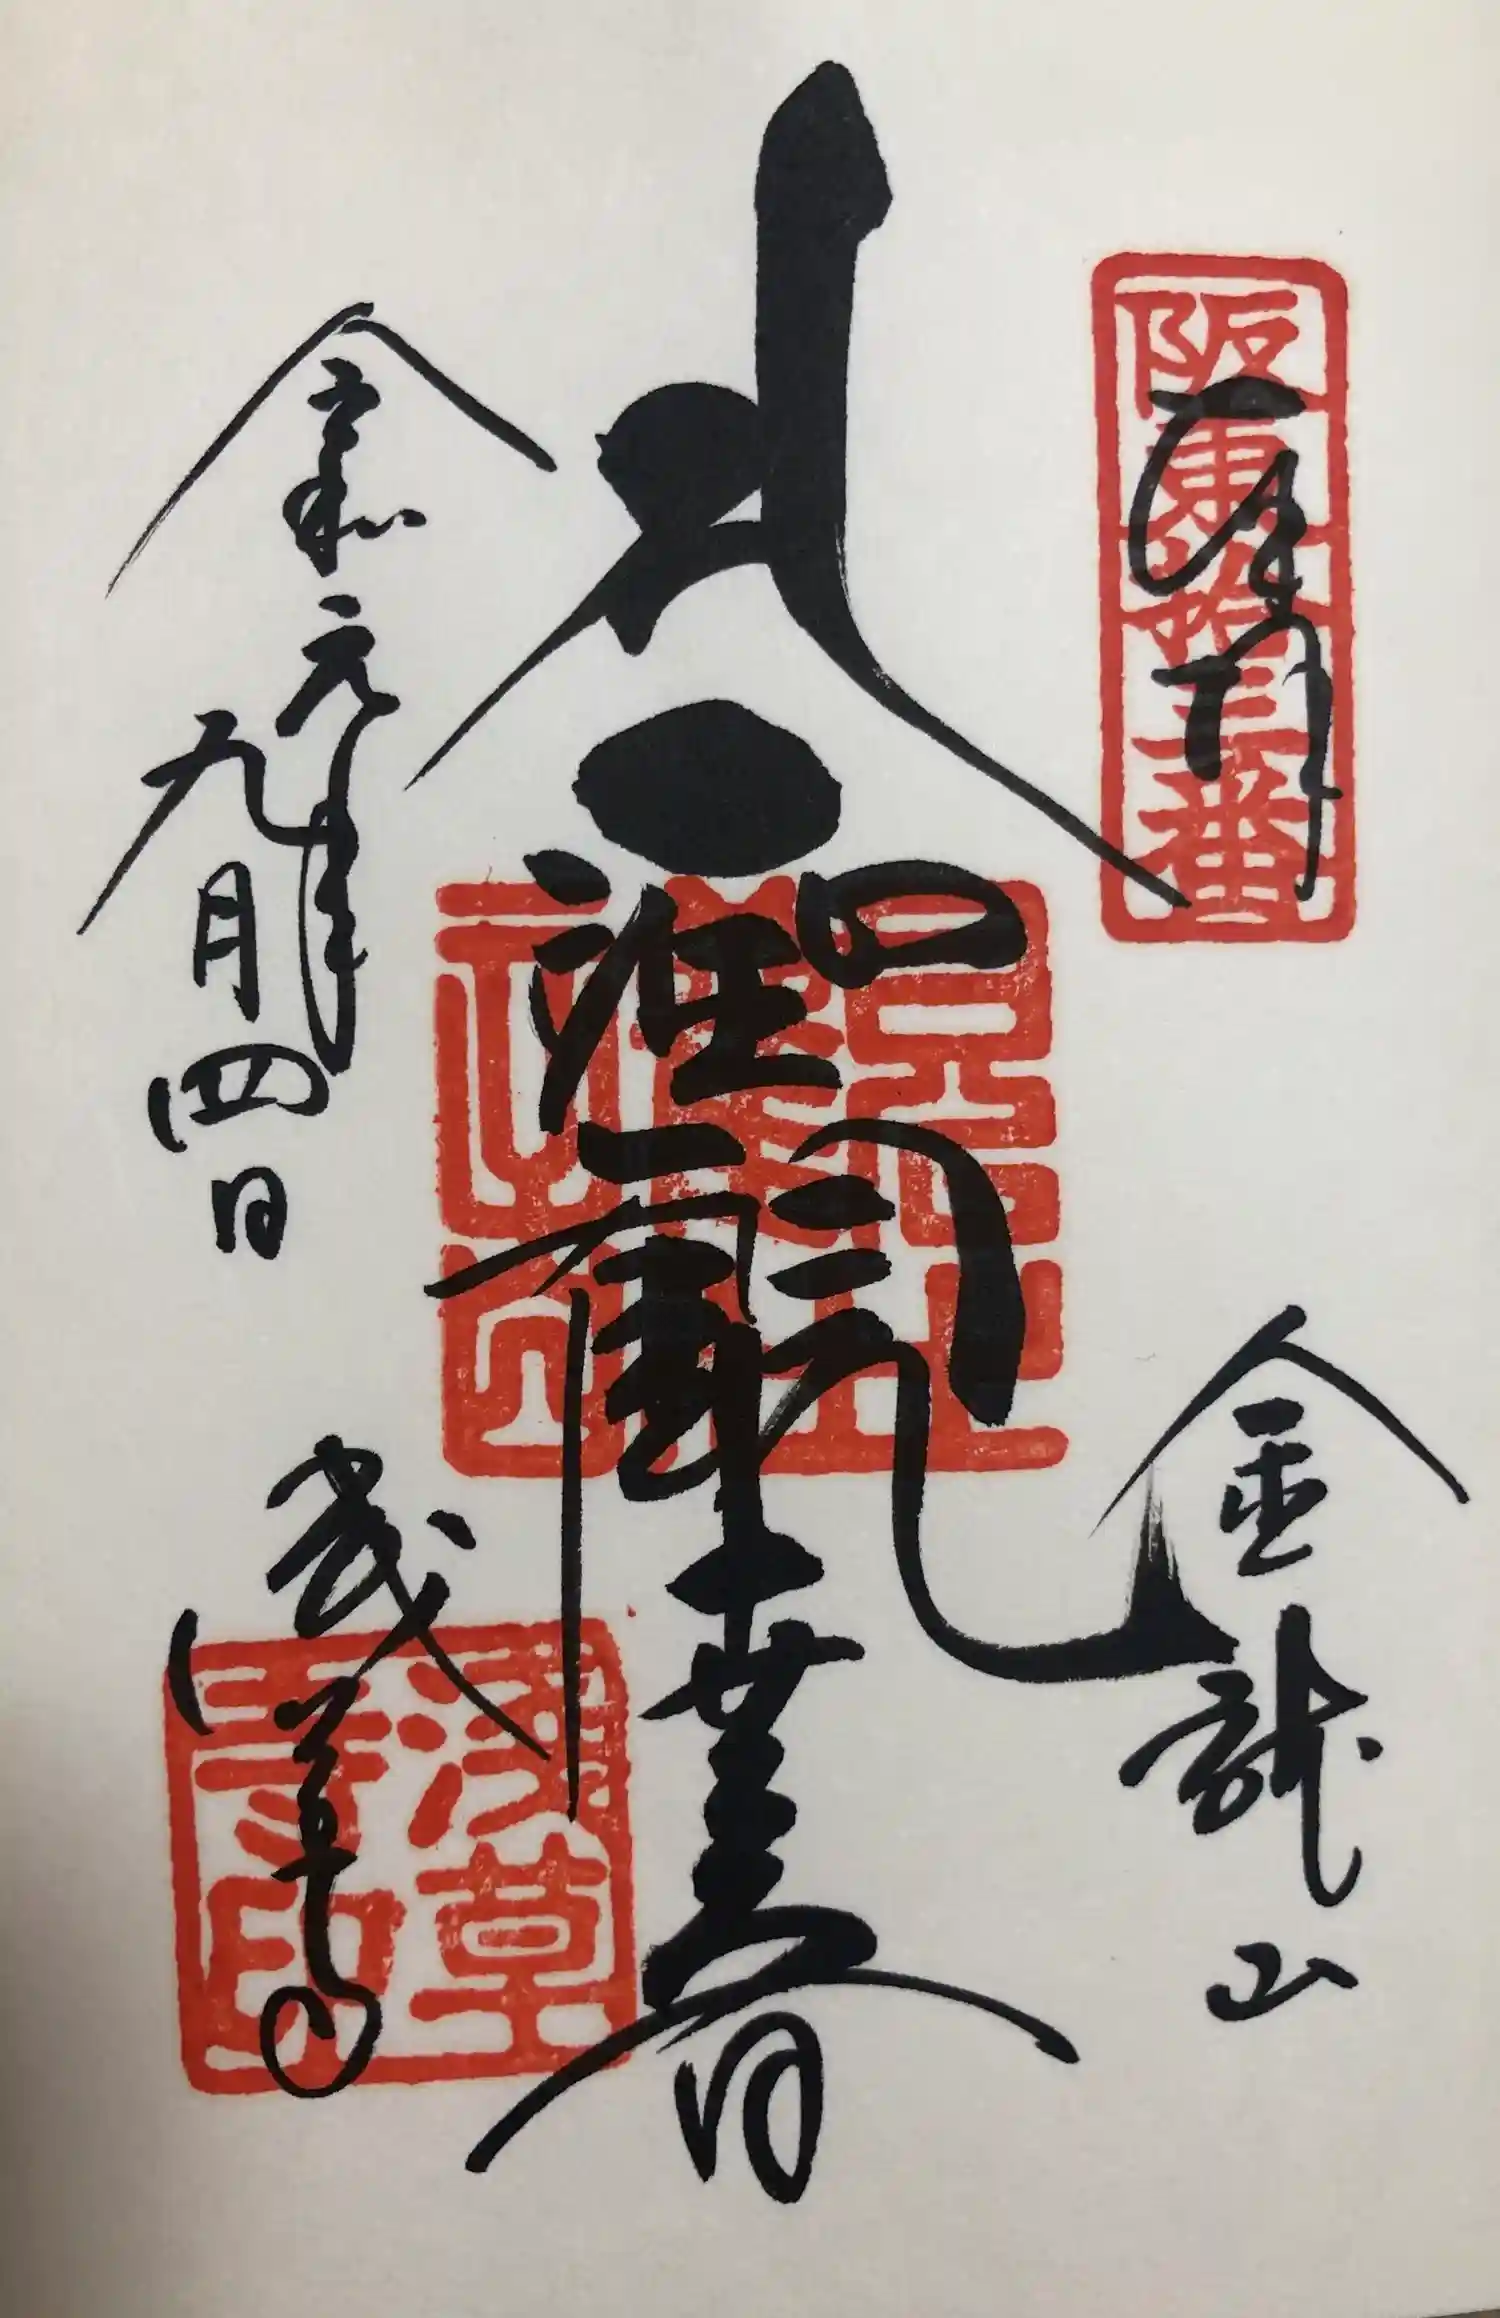 奉拝
阪東拾三番
金龍山
聖観世音
令和元年
九月四日
浅草寺
浅草寺印